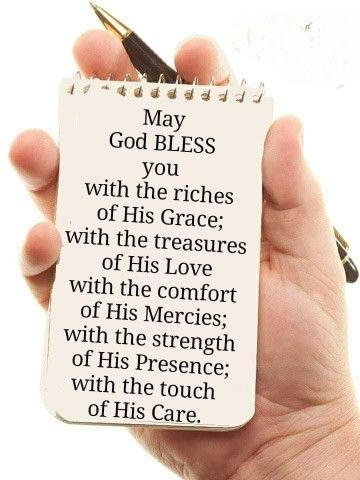 May
God BLESS
you
with the riches
of His Grace;
with the treasures
of His Love
with the comfort
of His Mercies;
with the strength
of His Presence;
with the touch
of His Care.